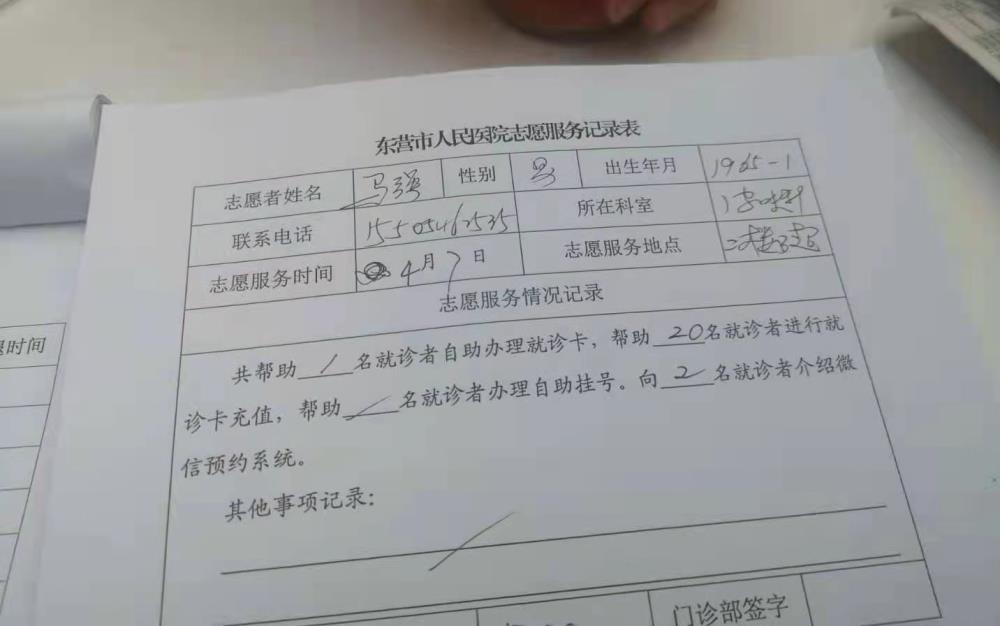 东营市人民医院志愿服务记录表
志愿者姓名 马强 性别 男 出生年月 1965-1
联系电话 15505462535 所在科室
志愿服务时间 4月7日 志愿服务地点
志愿服务情况记录
共帮助 / 名就诊者自助办理就诊卡，帮助 20 名就诊者进行就
诊卡充值，帮助 / 名就诊者办理自助挂号。向 2 名就诊者介绍微
信预约系统。
其他事项记录：
/
门诊部签字
时间